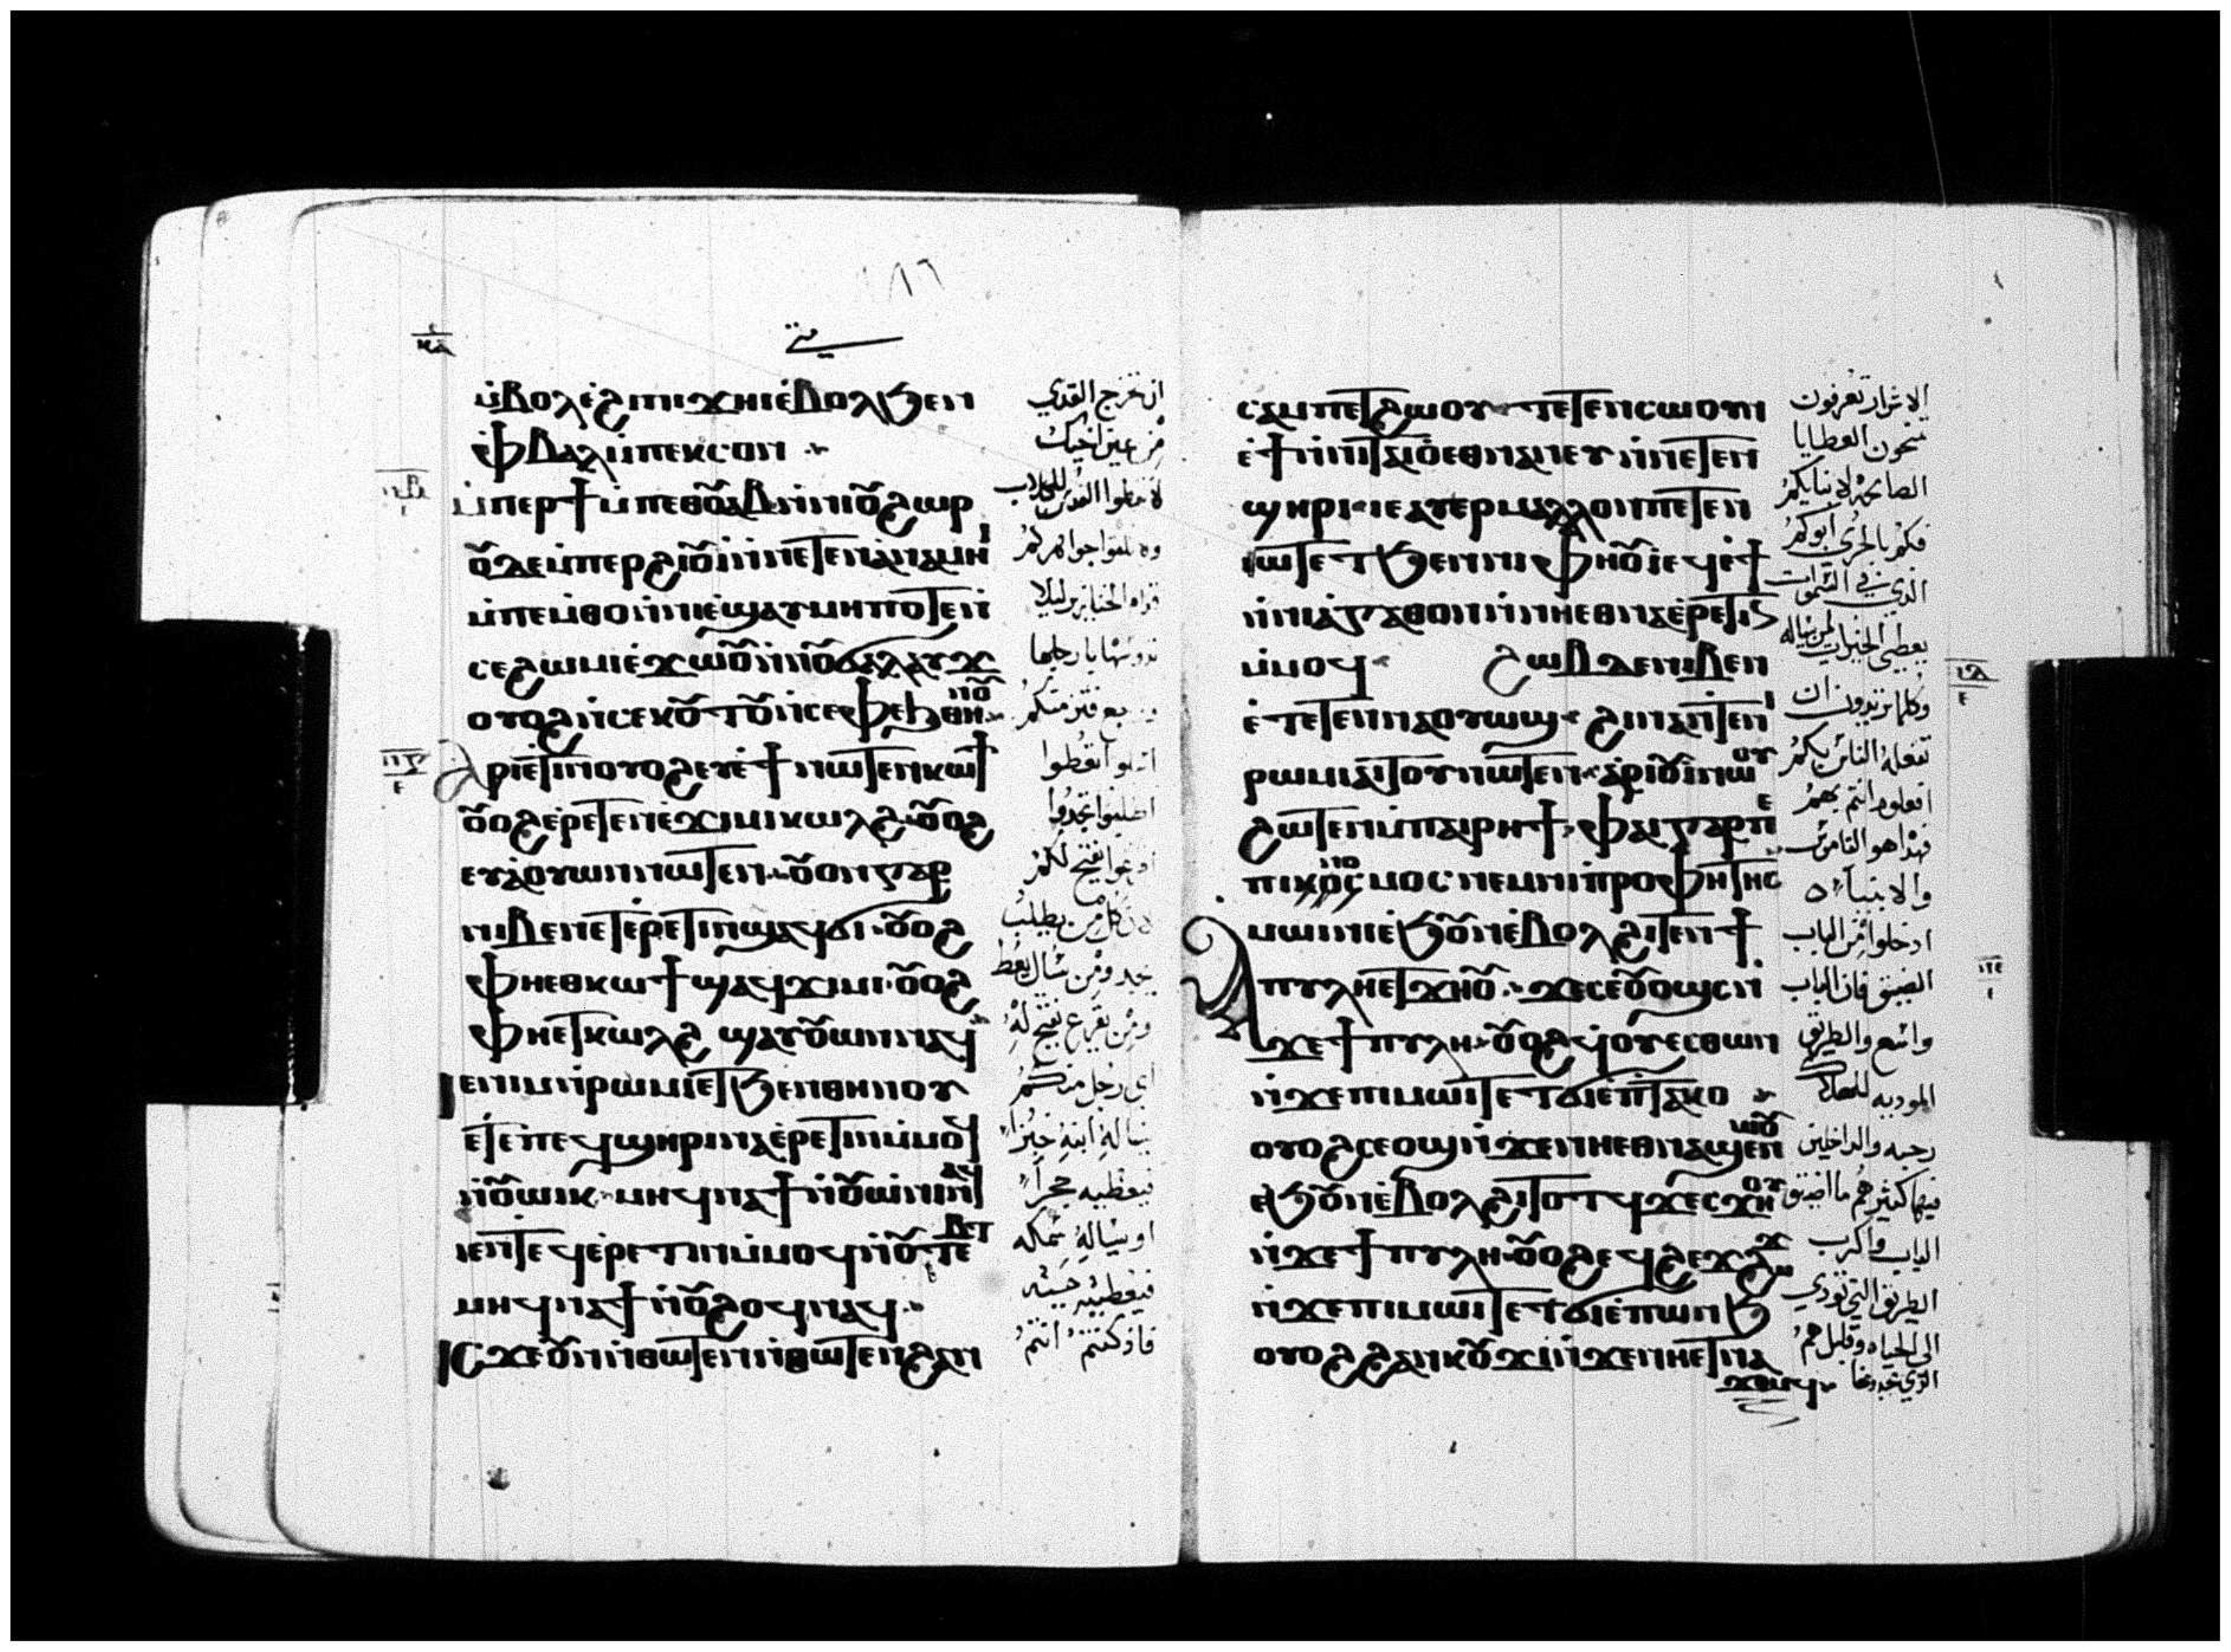 متي
ⲙ̇ⲃⲟⲗⲉ̇ϩⲓⲡⲓϫⲏⲓⲉ̇ⲃⲟⲗϧⲉⲛ
ⲫⲃⲁⲗⲙ̇ⲡⲉⲕⲥⲟⲛ
ⲙ̇ⲡⲉⲣϯⲙ̇ⲡⲉⲑⲟⲩⲁⲃⲛ̇ⲛⲓⲟⲩϩⲱⲣ
ⲟⲩⲇⲉⲙ̇ⲡⲉⲣϩⲓⲟⲩⲓ̇ⲛ̇ⲛⲉⲧⲉⲛⲁ̇ⲛⲁⲙⲏⲓ
ⲙ̇ⲡⲉⲙ̇ⲑⲟⲛ̇ⲛⲓⲉ̇ϣⲁⲩⲙⲏⲡⲟⲧⲉⲛ̇
ⲥⲉϩⲱⲙⲓⲉ̇ϫⲱⲟⲩⲛ̇ⲛⲟⲩϭⲁⲗⲁⲩϫ
ⲟⲩⲟϩⲛ̇ⲥⲉⲕⲟⲩⲧⲟⲩⲛ̇ⲥⲉⲫⲉϧⲑⲏⲛⲟⲩ
ⲁⲣⲓⲉ̇ⲧⲓⲛⲟⲩⲟϩⲉⲩⲉ̇ϯⲛⲱⲧⲉⲛⲕⲱϯ
ⲟⲩⲟϩⲉ̇ⲣⲉⲧⲉⲛⲉ̇ϫⲓⲙⲓⲕⲱⲗϩ ⲟⲩⲟϩ
ⲉⲩⲁ̇ⲟⲩⲱⲛⲛⲱⲧⲉⲛ ⲟⲩⲟⲛⲅⲁⲣ
ⲛⲓⲃⲉⲛⲉⲧⲉ̇ⲣⲉⲧⲓⲛϣⲁϥϭⲓ ⲟⲩⲟϩ
ⲫⲏⲉⲑⲕⲱϯϣⲁϥϫⲓⲙⲓ ⲟⲩⲟϩ
ⲫⲏⲉⲧⲕⲱⲗϩ ϣⲁⲩⲟⲩⲱⲛⲛⲁϥ
ⲓⲉⲛⲓⲙⲛ̇ⲣⲱⲙⲓⲉⲧϧⲉⲛⲑⲏⲛⲟⲩ
ⲉⲧⲉⲡⲉϥϣⲏⲣⲓⲛⲁⲉ̇ⲣⲉⲧⲓⲛⲙ̇ⲙⲟϥ
ⲛ̇ⲟⲩⲱⲓⲕ ⲙⲏϥⲛⲁϯⲛ̇ⲟⲩⲱⲛⲓⲛⲁϥ
ⲓⲉⲛ̇ⲧⲉϥⲉ̇ⲣⲉⲧⲓⲛⲙ̇ⲙⲟϥⲛ̇ⲟⲩⲧⲉⲃⲧ
ⲙⲏϥⲛⲁϯⲛ̇ⲟⲩϩⲟϥⲛⲁϥ
ⲓⲥϫⲉⲟⲩⲛⲛ̇ⲑⲱⲧⲉⲛⲛ̇ⲑⲱⲧⲉⲛϩⲁⲛ
ان تخرج القدي
من عين اخيك
لا تعطوا القدس للكلاب
ولا تلقوا جواهركم
قدام الخنازير ليلا
تدوسها بارجلها
اطلبوا تجدوا
يفتح لكم
لان كل من يطلب
يجد ومن سال يعط
ومن يقرع يفتح له
اي رجل منكم
يساله ابنه خبزا
فيعطيه حجرا
او يساله سمكه
فيعطيه حيه
فاذ كنتم انتم
ⲥⲁⲙⲡⲉⲧϩⲱⲟⲩ ⲧⲉⲧⲉⲛⲥⲱⲟⲩⲛ
ⲉ̇ϯⲛ̇ⲛⲓⲧⲁⲓⲟⲉⲑⲛⲁⲛⲉⲩⲛ̇ⲛⲉⲧⲉⲛ
ϣⲏⲣⲓ ⲓⲉⲁⲩⲉⲣⲙⲁⲗⲗⲟⲛⲡⲉⲧⲉⲛ
ⲓⲱⲧⲉⲧϧⲉⲛⲛⲓⲫⲏⲟⲩⲓ̇ⲉϥⲉ̇ϯ
ⲛ̇ⲛⲓⲁ̇ⲅⲁⲑⲟⲛⲛ̇ⲛⲏⲉⲑⲛⲁⲉ̇ⲣⲉⲧⲓⲛ
ⲙ̇ⲙⲟϥ ϩⲱⲃⲇⲉⲛⲓⲃⲉⲛ
ⲉ̇ⲧⲉⲧⲉⲛⲛⲁⲟⲩⲱϣ ϩⲓⲛⲁⲛ̇ⲧⲉⲛⲓ
ⲣⲱⲙⲓⲁⲓⲧⲟⲩⲛⲱⲧⲉⲛ ⲁ̇ⲣⲓⲟⲩⲓ̇ⲛⲱⲟⲩ
ϩⲱⲧⲉⲛⲙ̇ⲡⲁⲓⲣⲏϯ ⲫⲁⲓⲅⲁⲣⲡⲉ
ⲡⲓⲛⲟⲙⲟⲥⲛⲉⲙⲛⲓⲡⲣⲟⲫⲏⲧⲏⲥ
ⲁⲙⲱⲓⲛⲓⲉ̇ϧⲟⲩⲛⲉ̇ⲃⲟⲗϩⲓⲧⲉⲛϯ
ⲡⲩⲗⲏⲉⲧϫⲏⲟⲩ ϫⲉⲥⲉⲟⲩⲟϣⲥⲛ̇
ϫⲉϯⲡⲩⲗⲏ ⲟⲩⲟϩϥⲟⲩⲉⲥⲑⲱⲛ
ⲛ̇ϫⲉⲡⲓⲙⲱⲓⲧⲉⲧϭⲓⲉ̇ⲡⲧⲁⲕⲟ
ⲟⲩⲟϩⲥⲉⲟϣⲛ̇ϫⲉⲛⲏⲉⲑⲛⲁϣⲉⲛⲱⲟⲩ
ⲉ̇ϧⲟⲩⲛⲉ̇ⲃⲟⲗϩⲓⲧⲟⲧϥ ϫⲉⲥϫⲏⲟⲩ
ⲛ̇ϫⲉϯⲡⲩⲗⲏ ⲟⲩⲟϩⲉϥϩⲉϫϩⲱϫ
ⲛ̇ϫⲉⲡⲓⲙⲱⲓⲧⲉⲧϭⲓⲉ̇ⲡⲱⲛϧ
ⲟⲩⲟϩϩⲁⲛⲕⲟⲩϫⲓⲛ̇ϫⲉⲛⲏⲉⲧⲛⲁ
ϫⲉⲙϥ
الاشرار تعرفون
تمنحون العطايا
الصالحه لابنايكم
فكم بالحري ابوكم
الذي في السموات
يعطي الخيرات لمن يساله
وكلما تريدون ان
تفعله الناس بكم
افعلوه انتم بهم
فهذا هو الناموس
والانبياء
ادخلوا من الباب
الضيق فان الباب
واسع والطريق
الموديه للهلاك
رحبه والداخلين
فيها كثير هم ما اضيق
الباب واكرب
الطريق التي تودي
الي الحياه وقليل هم
الذي يجدونها